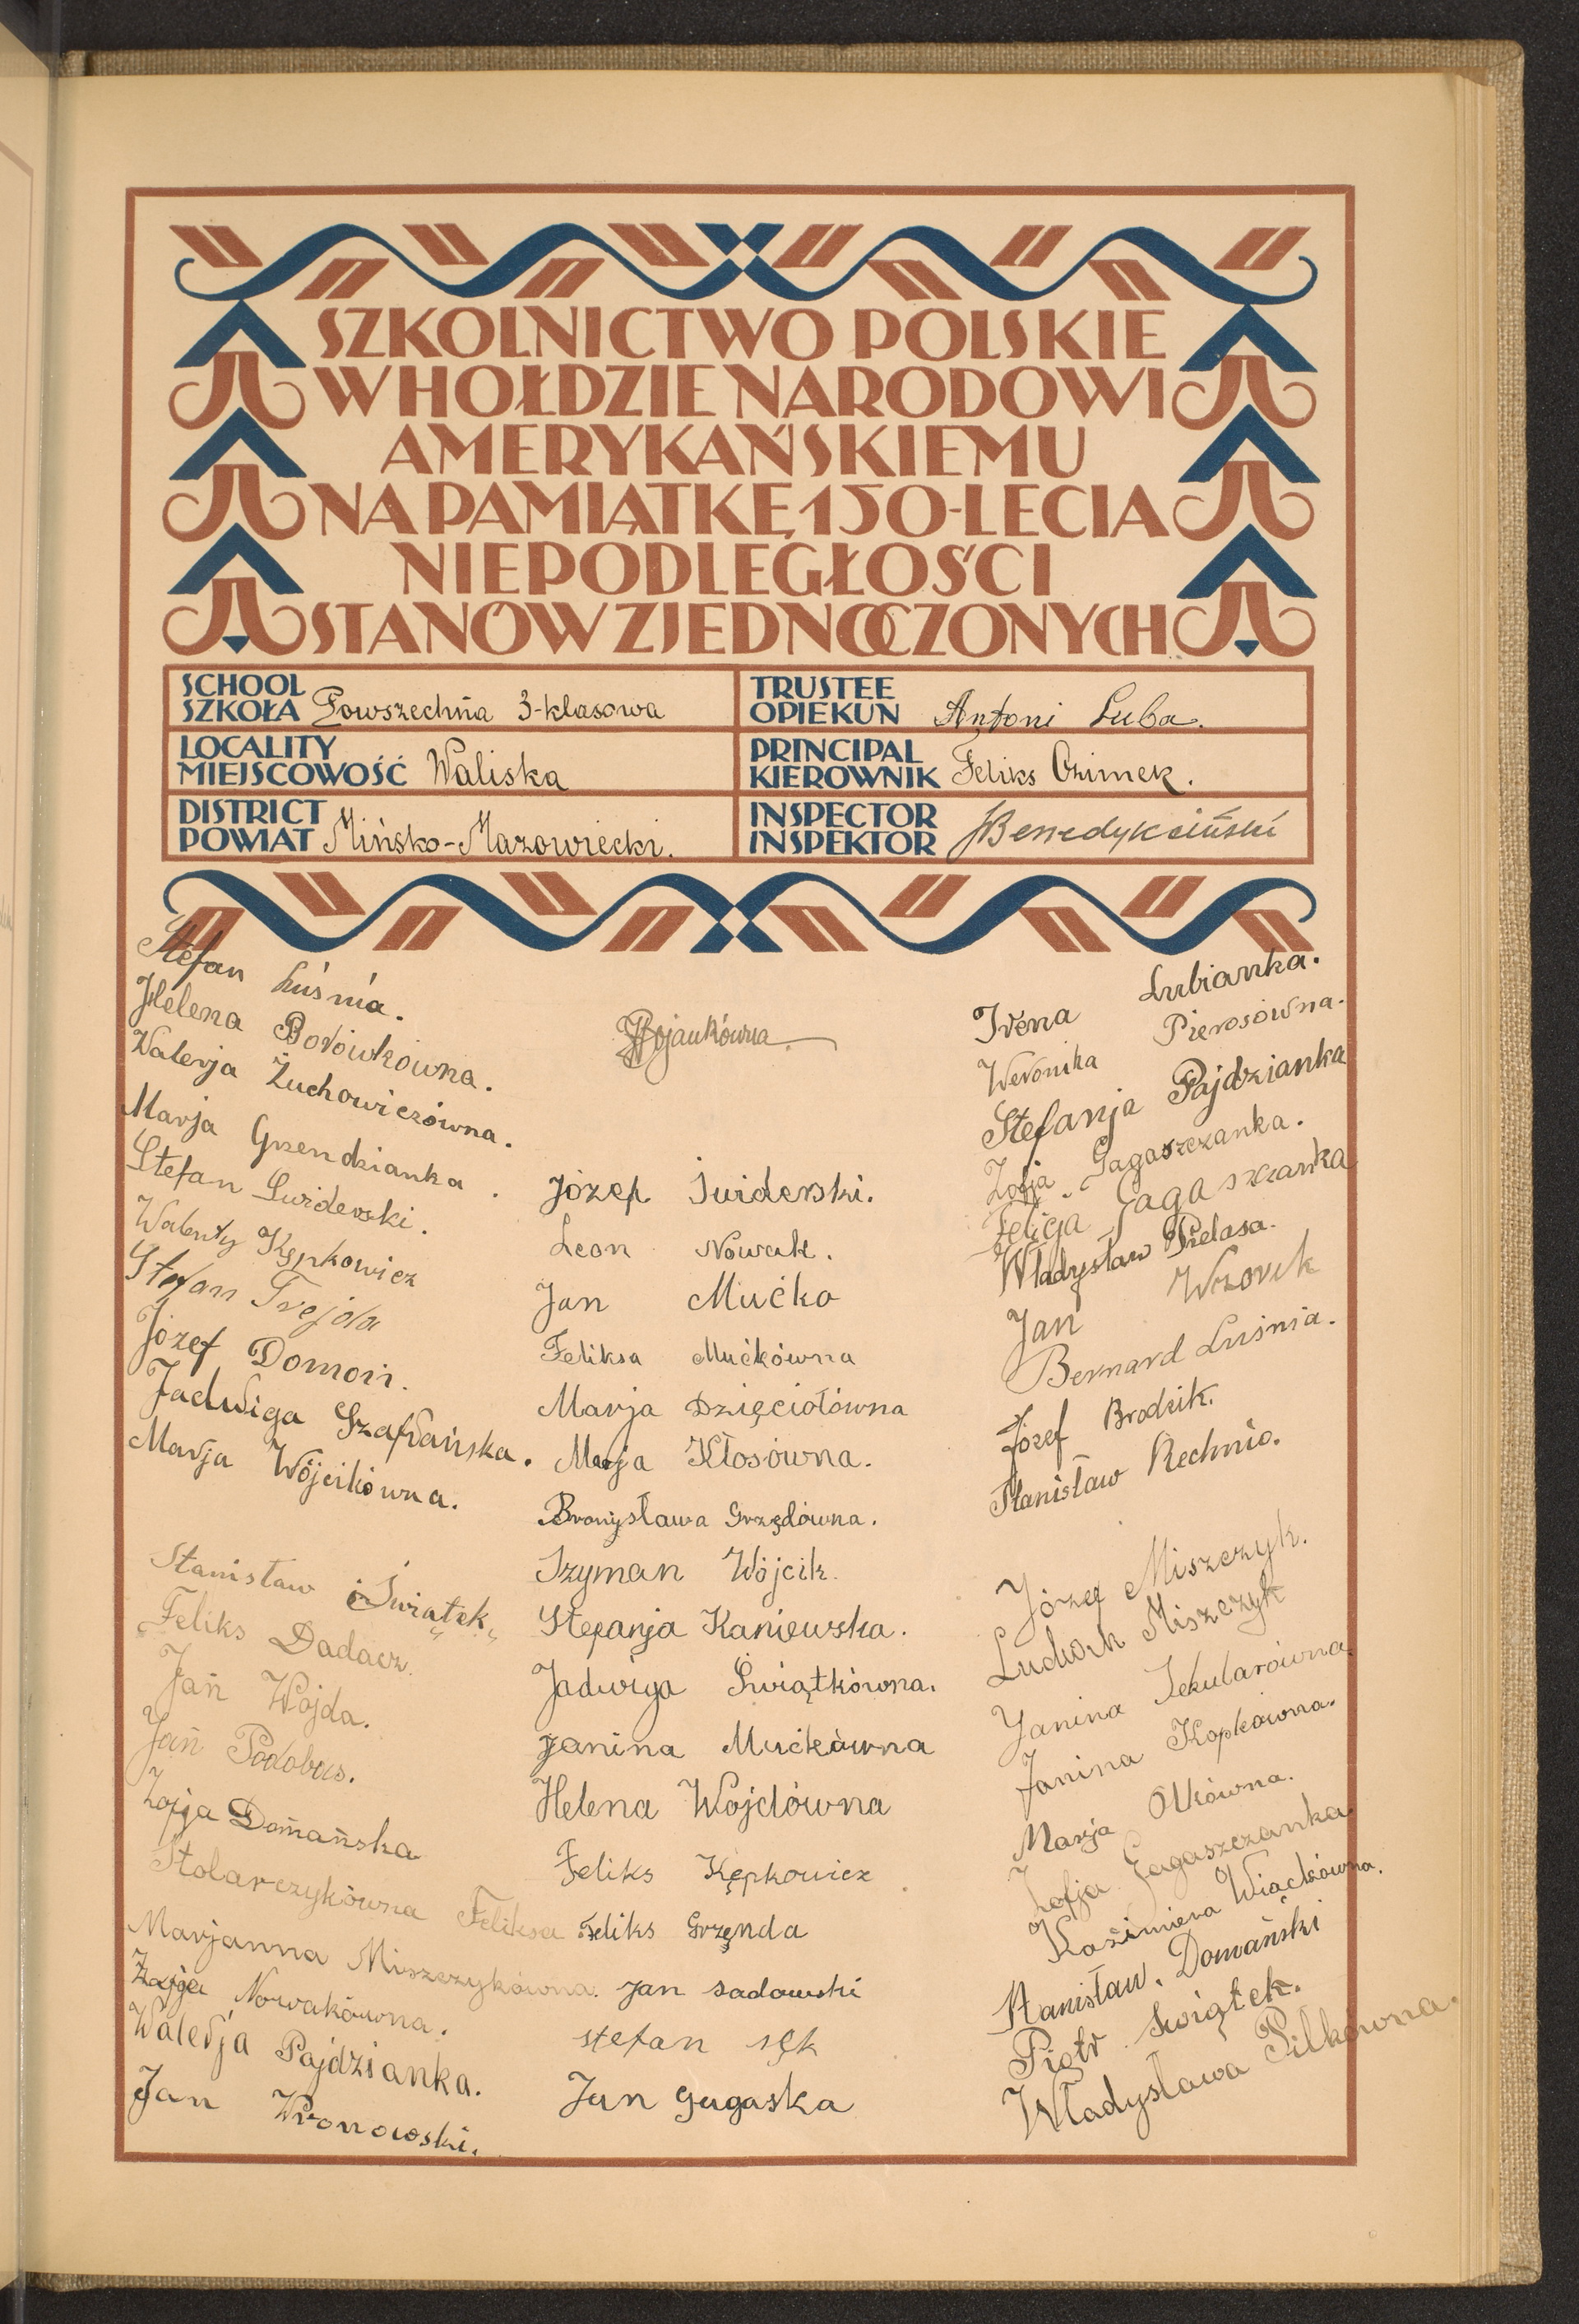 SZKOLNICTWO POLSKIE
W HOŁDZIE NARODOWI
AMERYKAŃSKIEMU
NA PAMIĄTKĘ 150-LECIA
NIEPODLEGŁOŚCI
STANÓW ZJEDNOCZONYCH
SCHOOL
SZKOŁA Powszechna 3-klasowa
TRUSTEE
OPIEKUN Antoni Luba.
LOCALITY
MIEJSCOWOŚĆ Waliska
PRINCIPAL
KIEROWNIK Feliks Ozimek.
DISTRICT
POWIAT Mińsko-Mazowiecki.
INSPECTOR
INSPEKTOR Benedykciński
Stefan Luśnia.
Helena Borówkówna.
Walerja Żuchowiczówna.
Marja Grzendzianka.
Stefan Świderski.
Walenty Kępkowicz
Stefan Trejda
Józef Domoń.
Jadwiga Szafrańska.
Marja Wójcikówna.
Stanisław Świątek
Feliks Dadacz.
Jań Wojda.
Jań Podobas.
Zofja Domańska
Stolarczykówna Feliksa
Marjanna Miszczykówna.
Zofja Nowakówna.
Walerja Pajdzianka.
Jan Wronowski.
Bojankówna
Józef Świderski.
Leon Nowak.
Jan Mućka
Feliksa Mućkówna
Marja Dzięciołówna
Marja Kłosówna.
Bronysława Grzędówna.
Szyman Wójcik.
Stefanja Kaniewska.
Jadwiga Świątkówna.
Janina Mućkówna
Helena Wojdówna
Feliks Kępkowicz
Feliks Grzęnda
Jan Sadowski
Stefan Sęk
Jan Gagaska
Irena Lubianka.
Weronika Pierosówna.
Stefanja Pajdzianka
Zofja Gagaszczanka.
Felicja Gagaszczanka
Władysław Prelasa.
Jan Wzorek
Bernard Luśnia.
Józef Brodzik.
Stanisław Rechnio.
Józef Miszczyk.
Ludwik Miszczyk
Janina Sekularówna
Janina Kopkówna.
Marja Olkówna.
Zofja Gagaszczanka
Kazimiera Wiackówna.
Stanisław. Domański
Piotr Świątek.
Władysława Pilkówna.